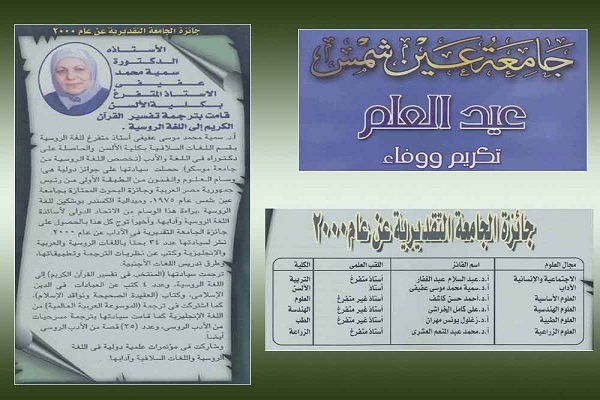 جائزة الجامعة التقديرية عن عام ٢٠٠٠
الأستاذه
الدكتورة
سمية محمد
عفيفى
الاستاذ المتفرغ
بكلية الألسن
قامت بترجمة تفسير القرآن
الكريم إلى اللغة الروسية .
أ.د. سمية محمد موسى عفيفى أستاذ متفرغ للغة الروسية
بقسم اللغات السلافية بكلية الألسن والحاصلة على
دكتوراه فى اللغة والأدب (تخصص اللغة الروسية من
جامعة موسكو) حصلت سيادتها على جوائز دولية هى:
وسام العلوم والفنون من الطبقة الأولى من رئيس
جمهورية مصر العربية وجائزة البحوث الممتازة بجامعة
عين شمس عام ١٩٧٥، وميدالية الكسندر بوشكين للغة
الروسية براءة هذا الوسام من الاتحاد الدولى لأساتذة
اللغة الروسية وآدابها. وأخيرا توج كل هذا بالحصول على
جائزة الجامعة التقديرية فى الآداب عن عام ٢٠٠٠.
نشر لسيادتها عدد ٣٤ بحثا باللغات الروسية والعربية
والإنجليزية وكتب عن نظريات الترجمة وتطبيقاتها،
وطرق تدريس اللغات الأجنبية.
ترجمت سيادتها (المنتخب فى تفسير القرآن الكريم) إلى
اللغة الروسية، وعدد ٤ كتب عن العبادات فى الدين
الإسلامى، وكتاب (العقيدة الصحيحة ونواقد الإسلام).
كما اشتركت فى ترجمة (الموسوعة العربية العالمية) من
اللغة الإنجليزية كما قامت سيادتها بترجمة مسرحيات
من الأدب الروسى، وعدد (٣٥) قصة من الأدب الروسى
أيضاً.
وشاركت فى مؤتمرات علمية دولية فى اللغة
الروسية واللغات السلافية وآدابها.
جامعة عين شمس
عيد العلم
تكريم ووفاء
جائزة الجامعة التقديرية عن عام ٢٠٠٠
مجال العلوم اسم الفائز اللقب العلمى الكلية
الاجتماعية والانسانية أ.د. عبد السلام عبد الغفار أستاذ متفرغ التربية
الآداب أ.د. سمية محمد موسى عفيفى أستاذ متفرغ الألسن
العلوم الأساسية أ.د. أحمد حسن كاشف أستاذ غير متفرغ العلوم
العلوم الهندسية أ.د. على كامل الخراشى أستاذ غير متفرغ الهندسة
العلوم الطبية أ.د. زغلول يونس مهران أستاذ غير متفرغ الطب
العلوم الزراعية أ.د. محمد عبد المنعم العشرى أستاذ متفرغ الزراعة